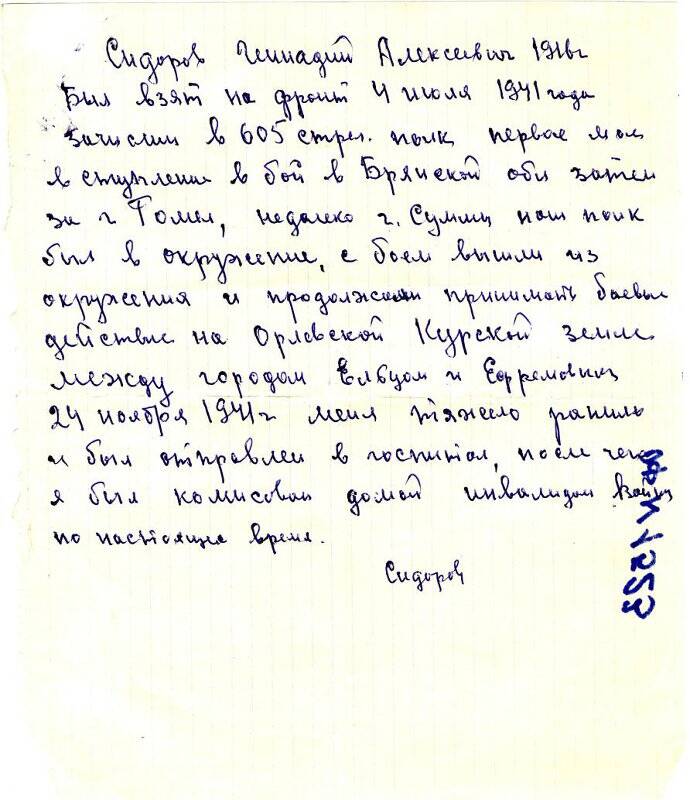 Сидоров Геннадий Алексеевич 1918г
Был взят на фронт 4 июля 1941 года
зачислен в 605 стрел. полк первое мое
вступление в бой в Брянской обл затем
за г Гомел, недалеко г. Суммы наш полк
был в окружение, с боем вышли из
окружения и продолжали принимать боевые
действие на Орловской Курской земле
между городом Ельцом и Ефремовким
24 ноября 1941г. меня тяжело ранило
и был отправлен в госпиталь, после чего
я был комисован домой инвалидом войны
по настоящее время.
Сидоров
1223